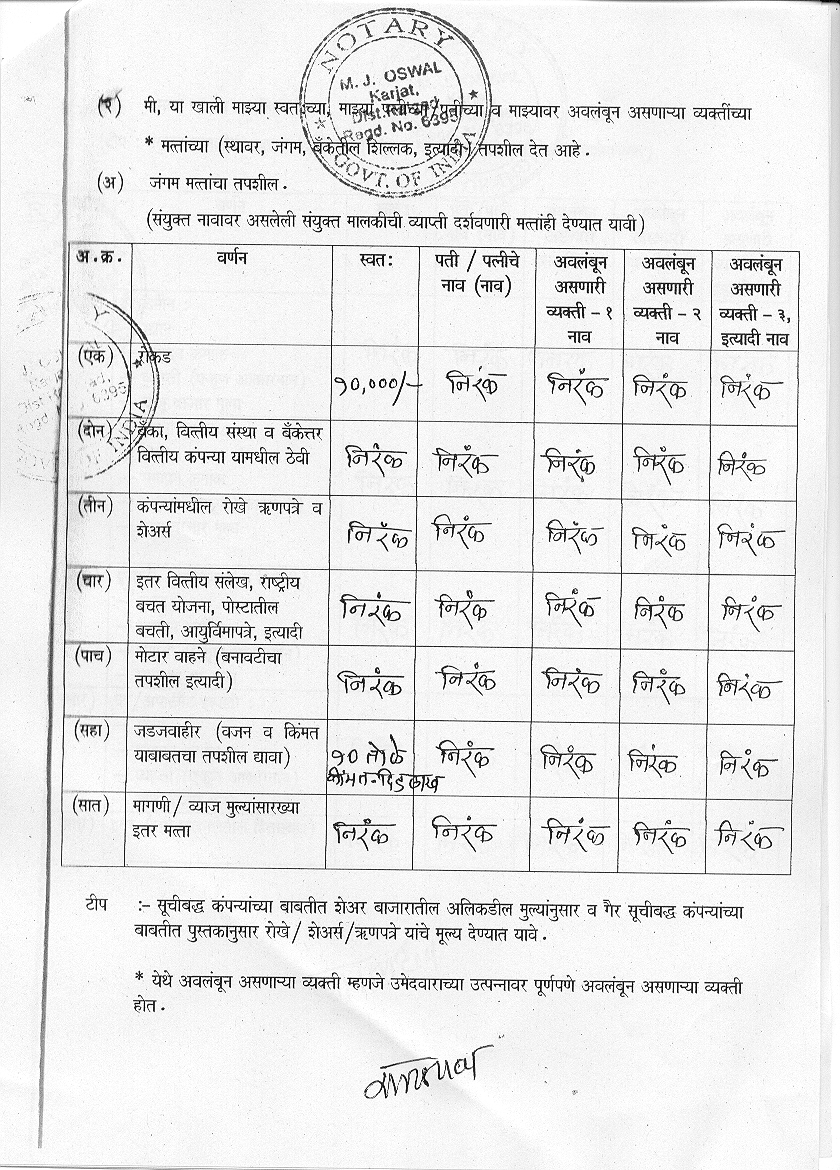 NOTARY
M. J. OSWAL
Karjat,
Regd. No. 6395
GOVT. OF INDIA
(२) मी, या खाली माझ्या स्वतःच्या, माझ्या पत्नीच्या/पतीच्या व माझ्यावर अवलंबून असणाऱ्या व्यक्तींच्या
* मत्तांच्या (स्थावर, जंगम, बँकेतील शिल्लक, इत्यादी) तपशील देत आहे.
(अ) जंगम मत्तांचा तपशील.
(संयुक्त नावावर असलेली संयुक्त मालकीची व्याप्ती दर्शवणारी मत्तांही देण्यात यावी)
अ.क्र. वर्णन स्वतः पती / पत्नीचे अवलंबून अवलंबून अवलंबून
नाव (नाव) असणारी असणारी असणारी
व्यक्ती – १ व्यक्ती – २ व्यक्ती – ३,
नाव नाव इत्यादी नाव
(एक) रोकड
१०,०००/- निरंक निरंक निरंक निरंक
(दोन) बँका, वित्तीय संस्था व बँकेत्तर
वित्तीय कंपन्या यामधील ठेवी निरंक निरंक निरंक निरंक निरंक
(तीन) कंपन्यांमधील रोखे ऋणपत्रे व
शेअर्स निरंक निरंक निरंक निरंक निरंक
(चार) इतर वित्तीय संलेख, राष्ट्रीय
बचत योजना, पोस्टातील निरंक निरंक निरंक निरंक निरंक
बचती, आयुर्विमापत्रे, इत्यादी
(पाच) मोटार वाहने (बनावटीचा
तपशील इत्यादी) निरंक निरंक निरंक निरंक निरंक
(सहा) जडजवाहीर (वजन व किंमत
याबाबतचा तपशील द्यावा) १० तोळे निरंक निरंक निरंक निरंक
किंमत-दिड लाख
(सात) मागणी/ व्याज मुल्यांसारख्या
इतर मत्ता निरंक निरंक निरंक निरंक निरंक
टीप :- सूचीबद्ध कंपन्यांच्या बाबतीत शेअर बाजारातील अलिकडील मुल्यांनुसार व गैर सूचीबद्ध कंपन्यांच्या
बाबतीत पुस्तकानुसार रोखे/ शेअर्स/ऋणपत्रे यांचे मूल्य देण्यात यावे.
* येथे अवलंबून असणाऱ्या व्यक्ती म्हणजे उमेदवाराच्या उत्पन्नावर पूर्णपणे अवलंबून असणाऱ्या व्यक्ती
होत.